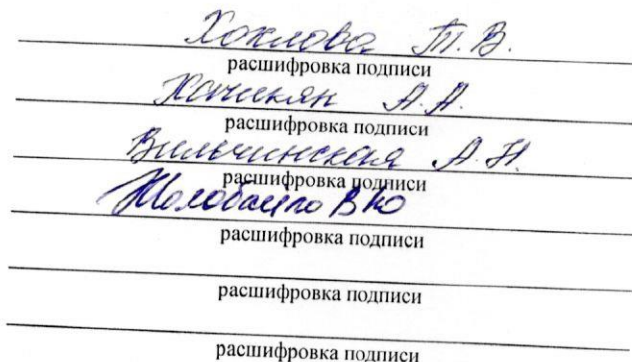 Хохлова Т.В.
расшифровка подписи
Хачикян А.А.
расшифровка подписи
Вильчинская А.Н.
расшифровка подписи
В Ю
расшифровка подписи
расшифровка подписи
расшифровка подписи